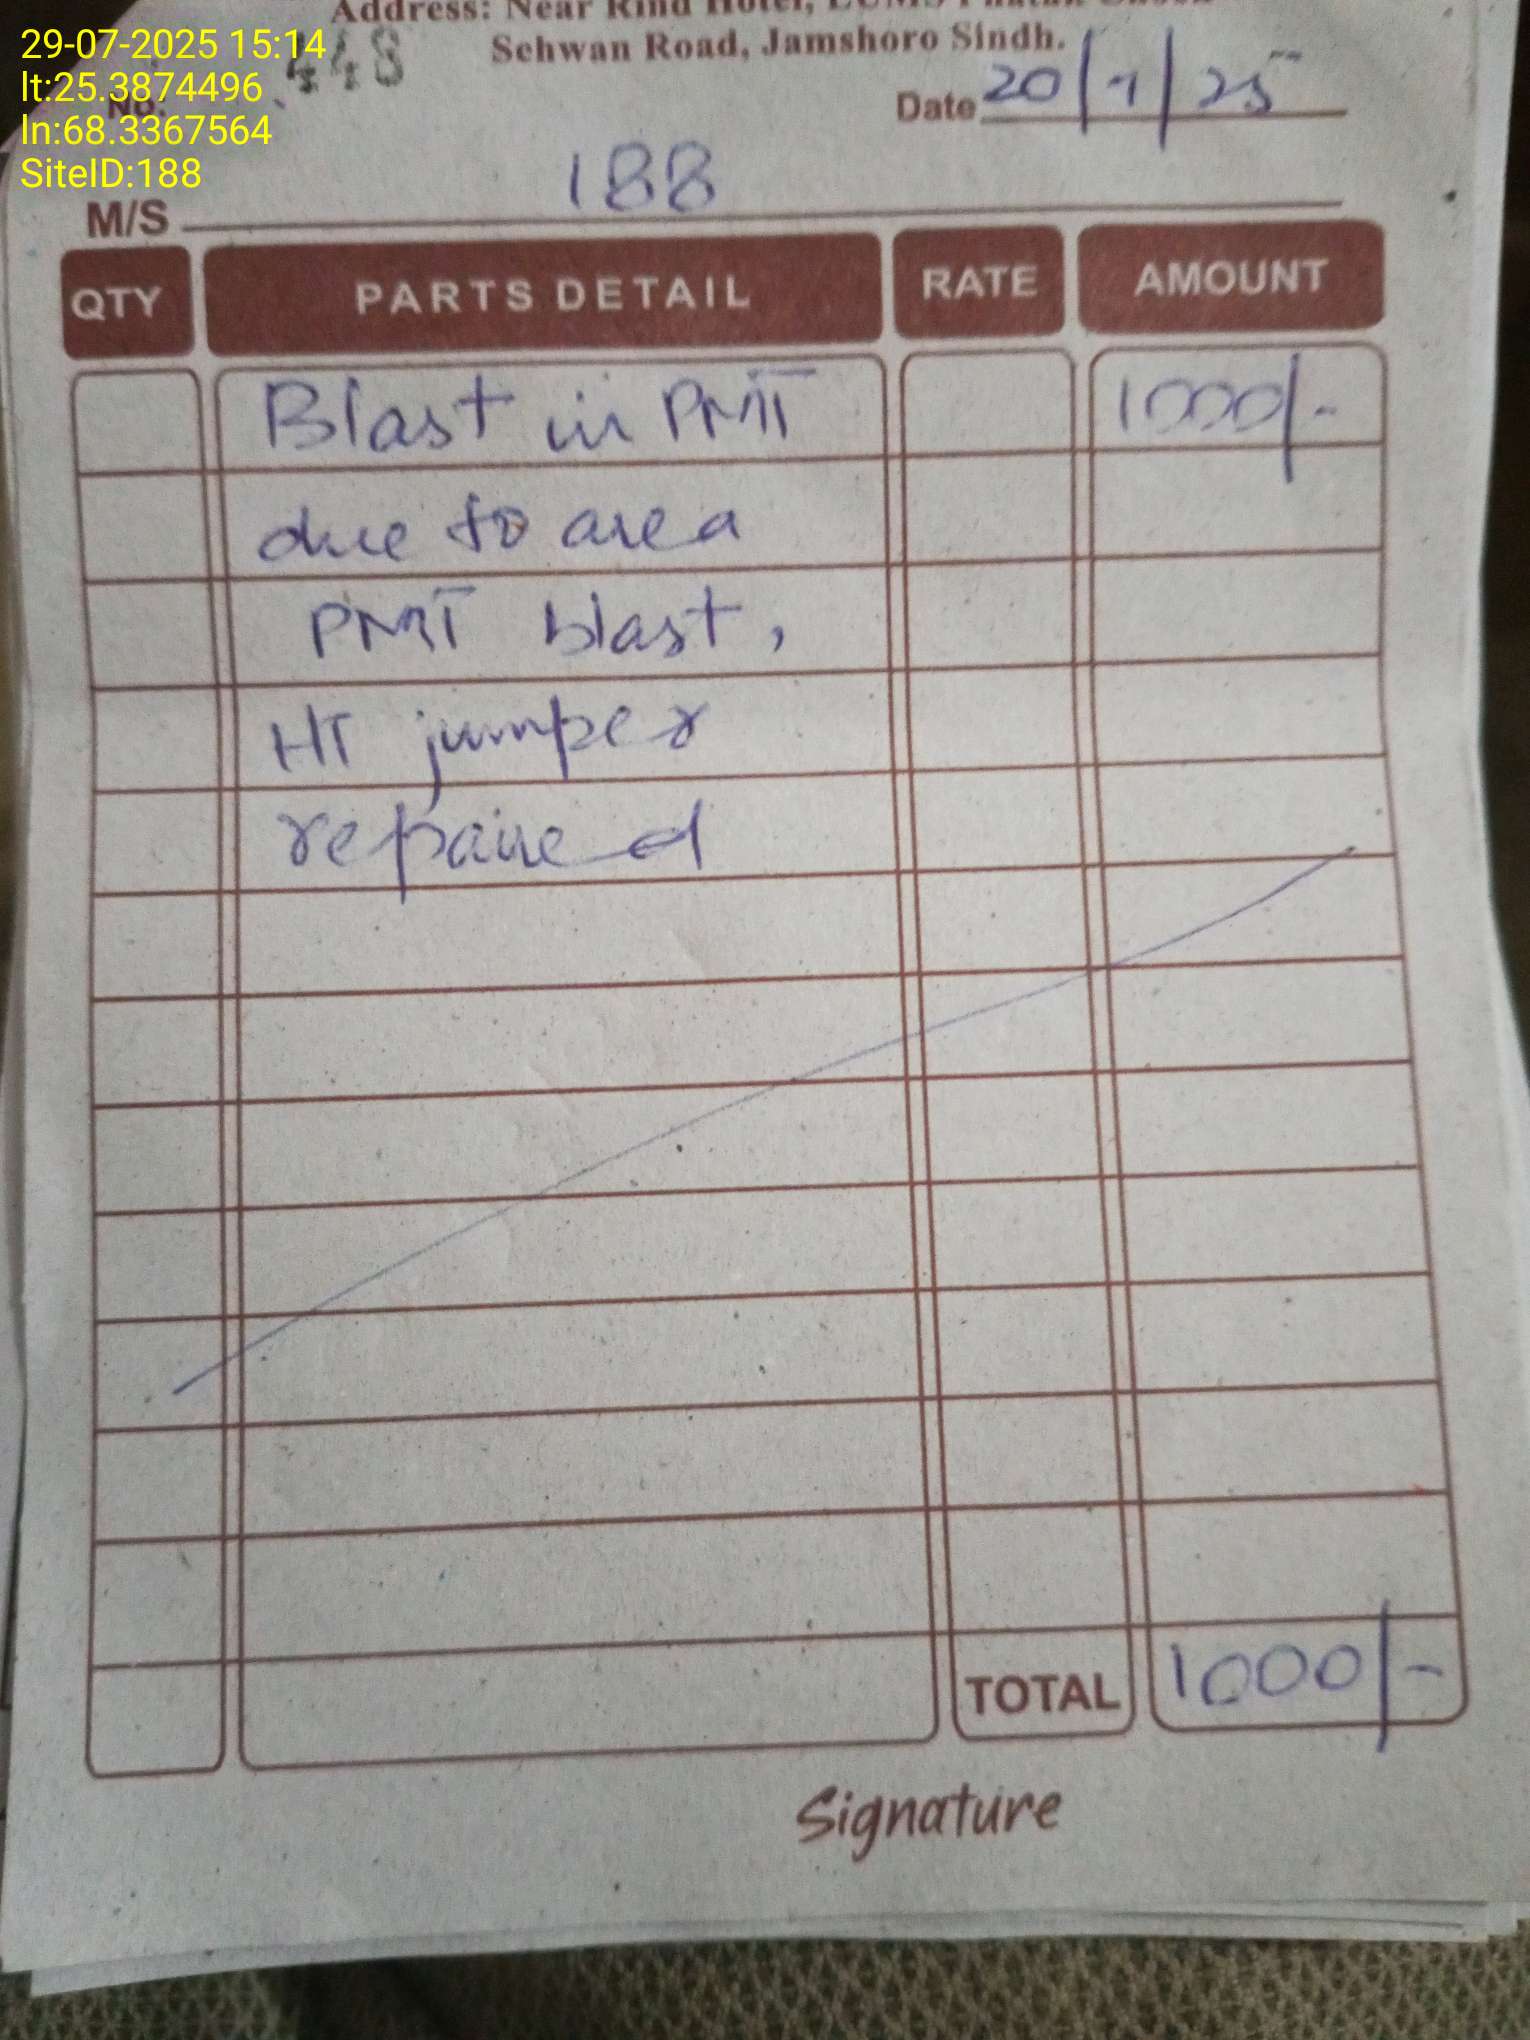 29-07-2025 15:14
lt:25.3874496
ln:68.3367564
SiteID:188
Address: Near Rind Hotel, LUMS Phatak Chock
Sehwan Road, Jamshoro Sindh.
No: 448
Date 20/7/25
M/S 188
QTY PARTS DETAIL RATE AMOUNT
Blast in PMT 1000/-
due to area
PMT blast,
HT jumper
repaired
TOTAL 1000/-
Signature